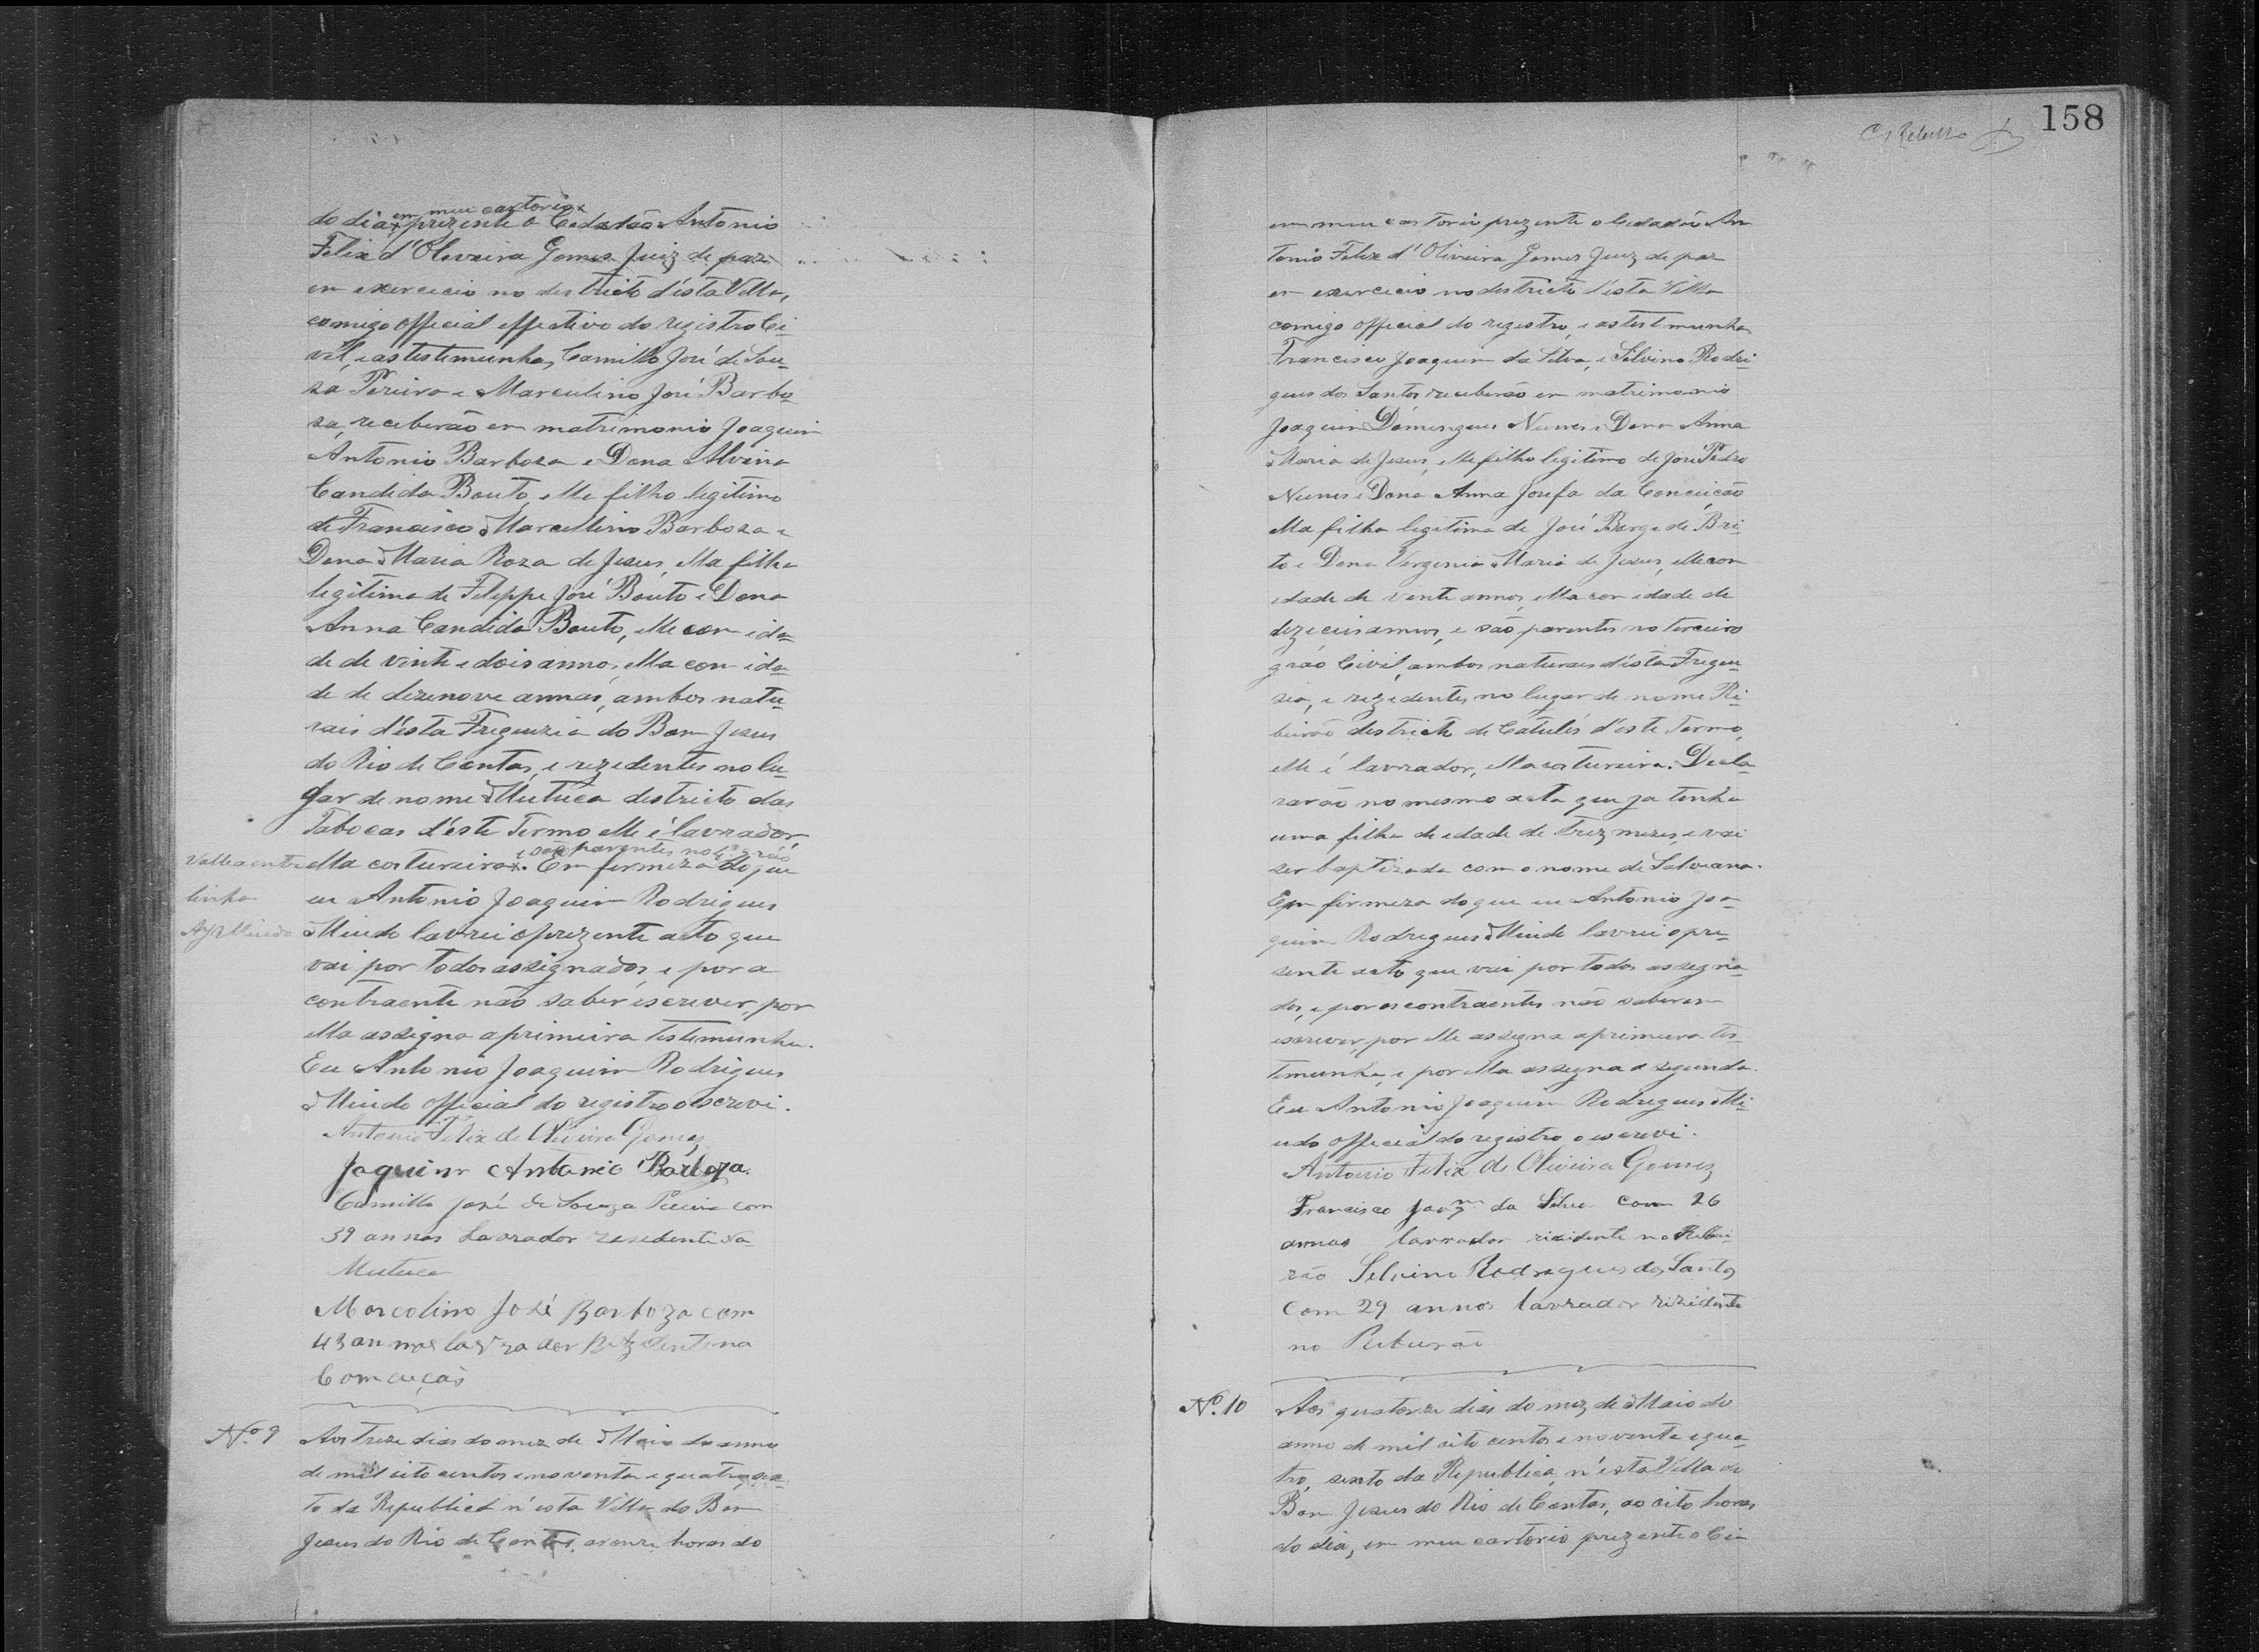 do dia x em meu cartorio x prezente o Cedadão Antonio
Felix d'Oleveira Gomes Juiz de paz
em exercecio no destricto d'ésta Villa,
comigo official effectivo do registro Ci-
vil, e as testemunhas, Camillo José de Sou-
za Pereira e Marculino José Barbo-
sa, receberão em matrimonio Joaquim
Antonio Barboza e Dona Alvina
Candida Bouto, elle filho legitimo
de Francisco Marcellino Barboza e
Dona Maria Roza de Jesus, ella filha
legitima de Felippe José Bouto e Dona
Anna Candida Bouto, elle com ida-
de de vinte e dois annos, ella com ida-
de de dezenove annos, ambos natu-
rais d'ésta Freguezia do Bom Jesus
do Rio de Contas, e rezedentes no lu-
gar de nome Mutuca destricto das
Tabocas d'éste Termo elle é lavrador,
ella costureira x e são parentes no grão. Em fermeza do que
eu Antonio Joaquim Rodrigues
Miudo lavrei o prezente acto que
vai por todos assignados, e por a
contraente não saber escrever, por
ella assigna a primeira testemunha.
Eu Antonio Joaquim Rodrigues
Miudo official do registro o escrevi.
Antonio Felix de Oliveira Gomes
Joaquim Antonio Barboza.
Camillo José de Souza Pereira com
39 annos Lavrador resedente na
Mutuca
Marcolino José Barboza com
43 annos lavrador Rezedente na
Comceição
Valle a entre
linha
AJR Miudo
Nº 9 Aos treze dias do mez de Maio do anno
de mil oito centos e noventa e quatro, sex-
to da Republica n'ésta Villa do Bom
Jesus do Rio de Contas, as onze horas do
158
C. Rebello
em meu cartorio prezente o Cedadão An
tonio Felix d'Oliveira Gomes Juiz de paz
em exercecio no destricto d'ésta Villa
comigo official do registro, e as testemunhas
Francisco Joaquim da Silva, e Silvino Rodri-
gues dos Santos receberão em matrimonio
Joaquim Domingues Nunes e Dona Anna
Maria de Jesus, elle filho legitimo de José Pedro
Nunes e Dona Anna Josefa da Conceição
ella filha legitima de José Borge de Bri-
to e Dona Vergenia Maria de Jesus, elle com
idade de vente annos, ella com idade de
dezeceis annos, e são parentes no terceiro
grão Civil, ambos naturaes d'ésta Fregue-
zia, e rezedentes no lugar de nome Ri-
beirão destricto de Catulés d'éste Termo,
elle é lavrador, ella costureira. Decla-
rarão no mesmo acto que ja tenha
uma filha de edade de trez mezes, e vai
ser baptizada com o nome de Salveana.
Em firmeza do que eu Antonio Joa-
quim Rodrigues Miudo lavrei o pre-
sente acto que vai por todos assegna-
dos, e por os contraentes não saberem
escrever, por elle assegna a primeira tes-
temunha, e por ella assegna a segunda.
Eu Antonio Joaquim Rodrigues Mi-
udo official do registro o escrevi.
Antonio Felix de Oliveira Gomes
Francisco Joaqm da Silva com 26
annos lavrador rizidente no Ribei-
rão Selvino Rodrigues dos Santos
com 29 annos lavrador rizidente
no Ribeirão
Nº. 10 Aos quatorze dias do mez de Maio do
anno de mil oito centos e noventa e qua-
tro, sexto da Republica, n'ésta Villa do
Bom Jesus do Rio de Contas, as oito horas
do dia, em meu cartorio prezente o Ci-